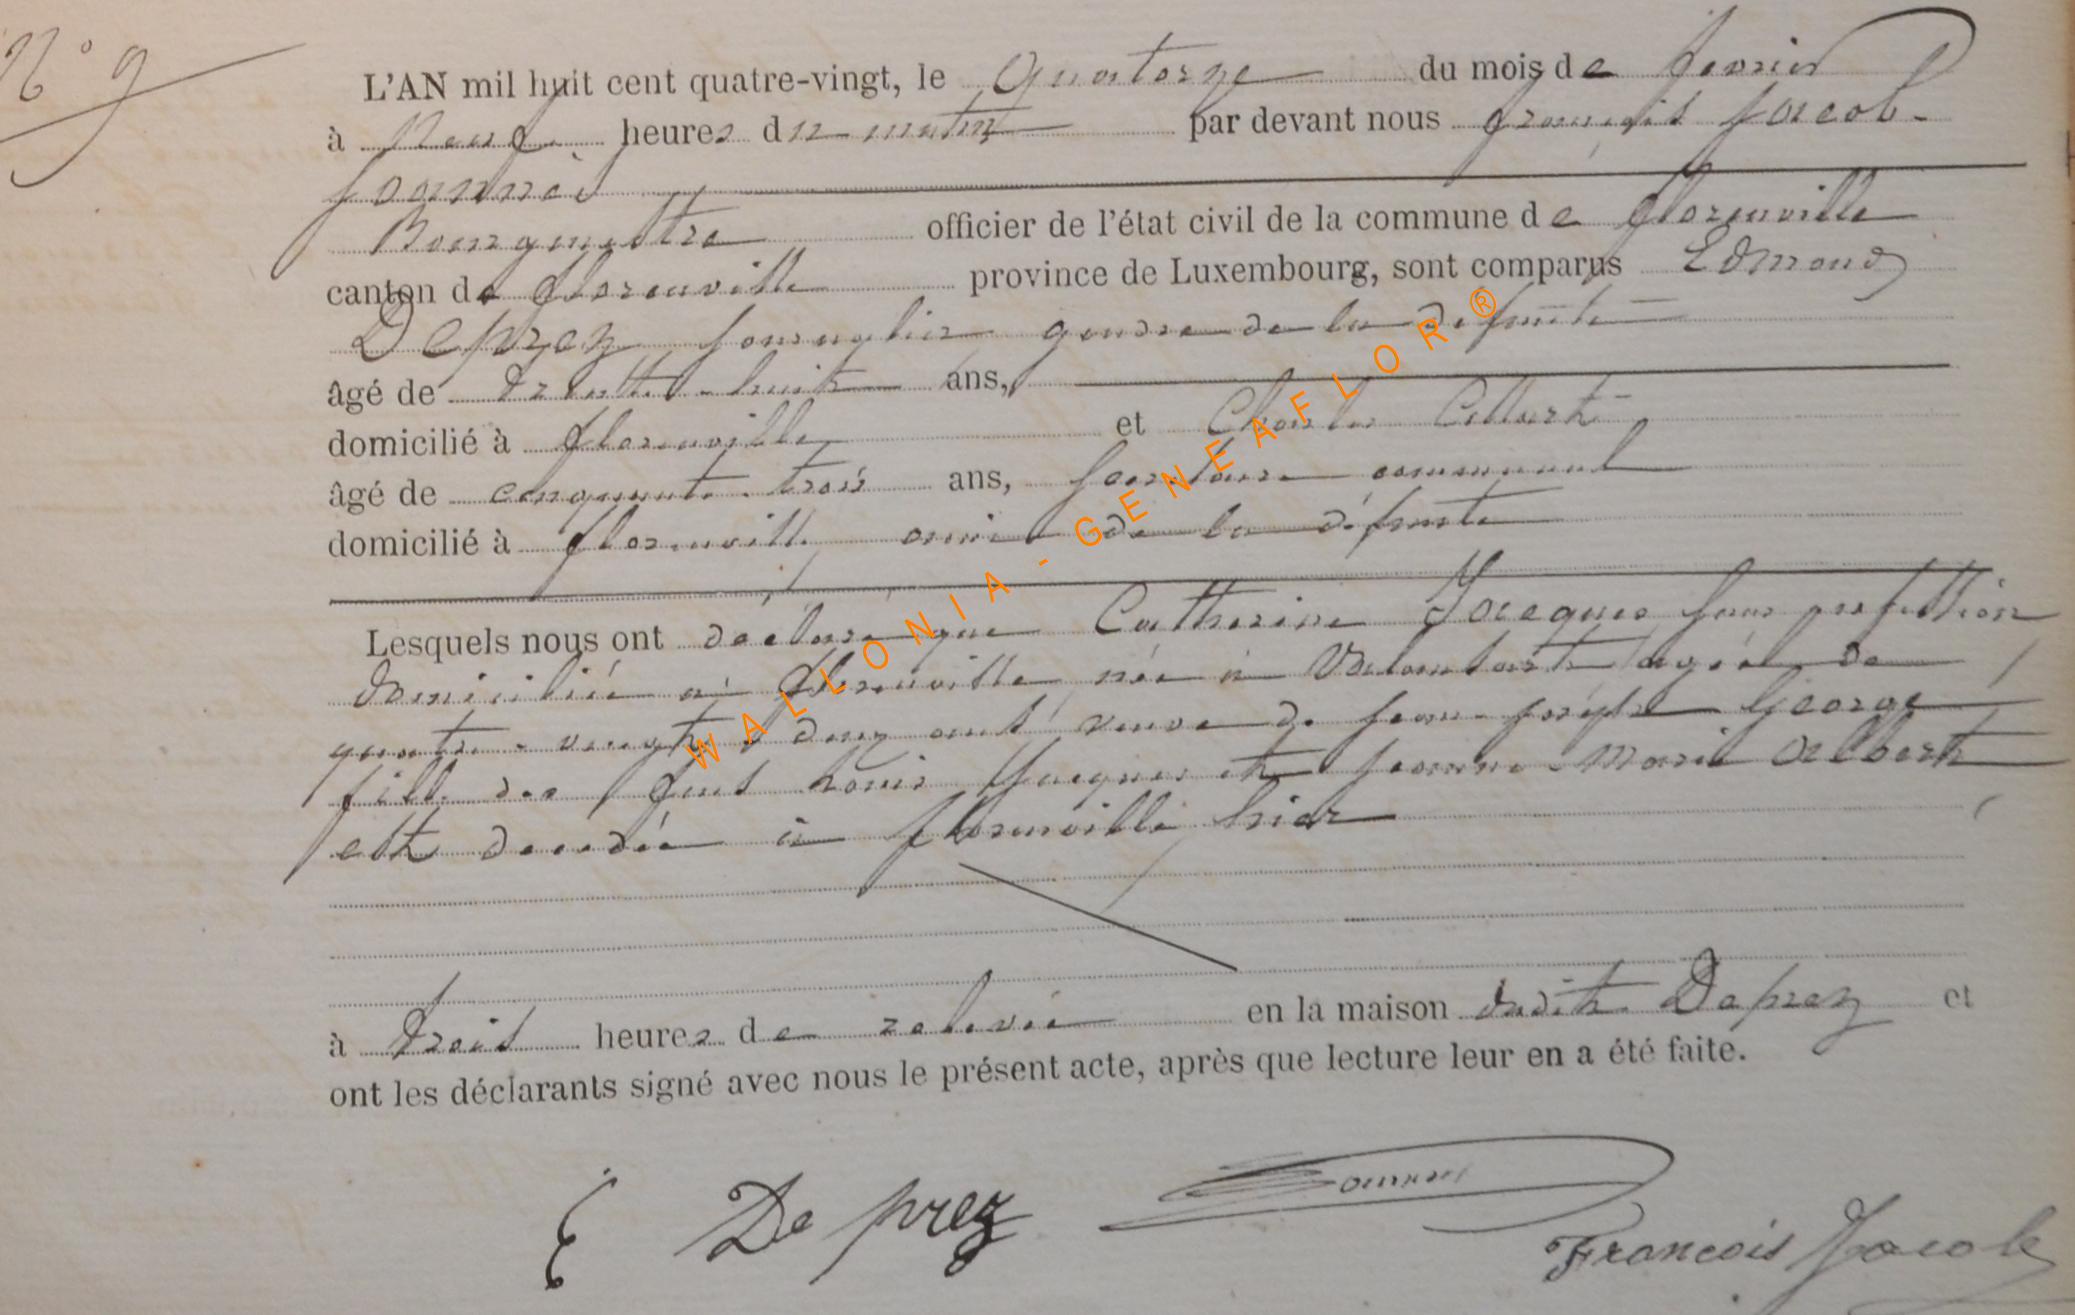 N° 9
L'AN mil huit cent quatre-vingt, le Quatorze du mois de fevrier
à Neuf heures du matin par devant nous françois Jacob
Bourgmestre officier de l'état civil de la commune de florenville
canton de florenville province de Luxembourg, sont comparus Edmond
Deprez gendre de la defunte
âgé de trente-huit ans,
domicilié à florenville et Charles Collart
âgé de cinquante-trois ans, secretaire communal
domicilié à florenville ami de la défunte
Lesquels nous ont déclaré que Catherine Jacques sans profession
domiciliée à florenville née à agée de
quatre-vingt deux ans veuve de Jean-Joseph George
fille des feus Louis Jacques et Jeanne-Marie Albert
est decedée à florenville hier
à trois heures de relevée en la maison dudit Deprez et
ont les déclarants signé avec nous le présent acte, après que lecture leur en a été faite.
E Deprez
François Jacob
WALLONIA - GENEAFLOR ®